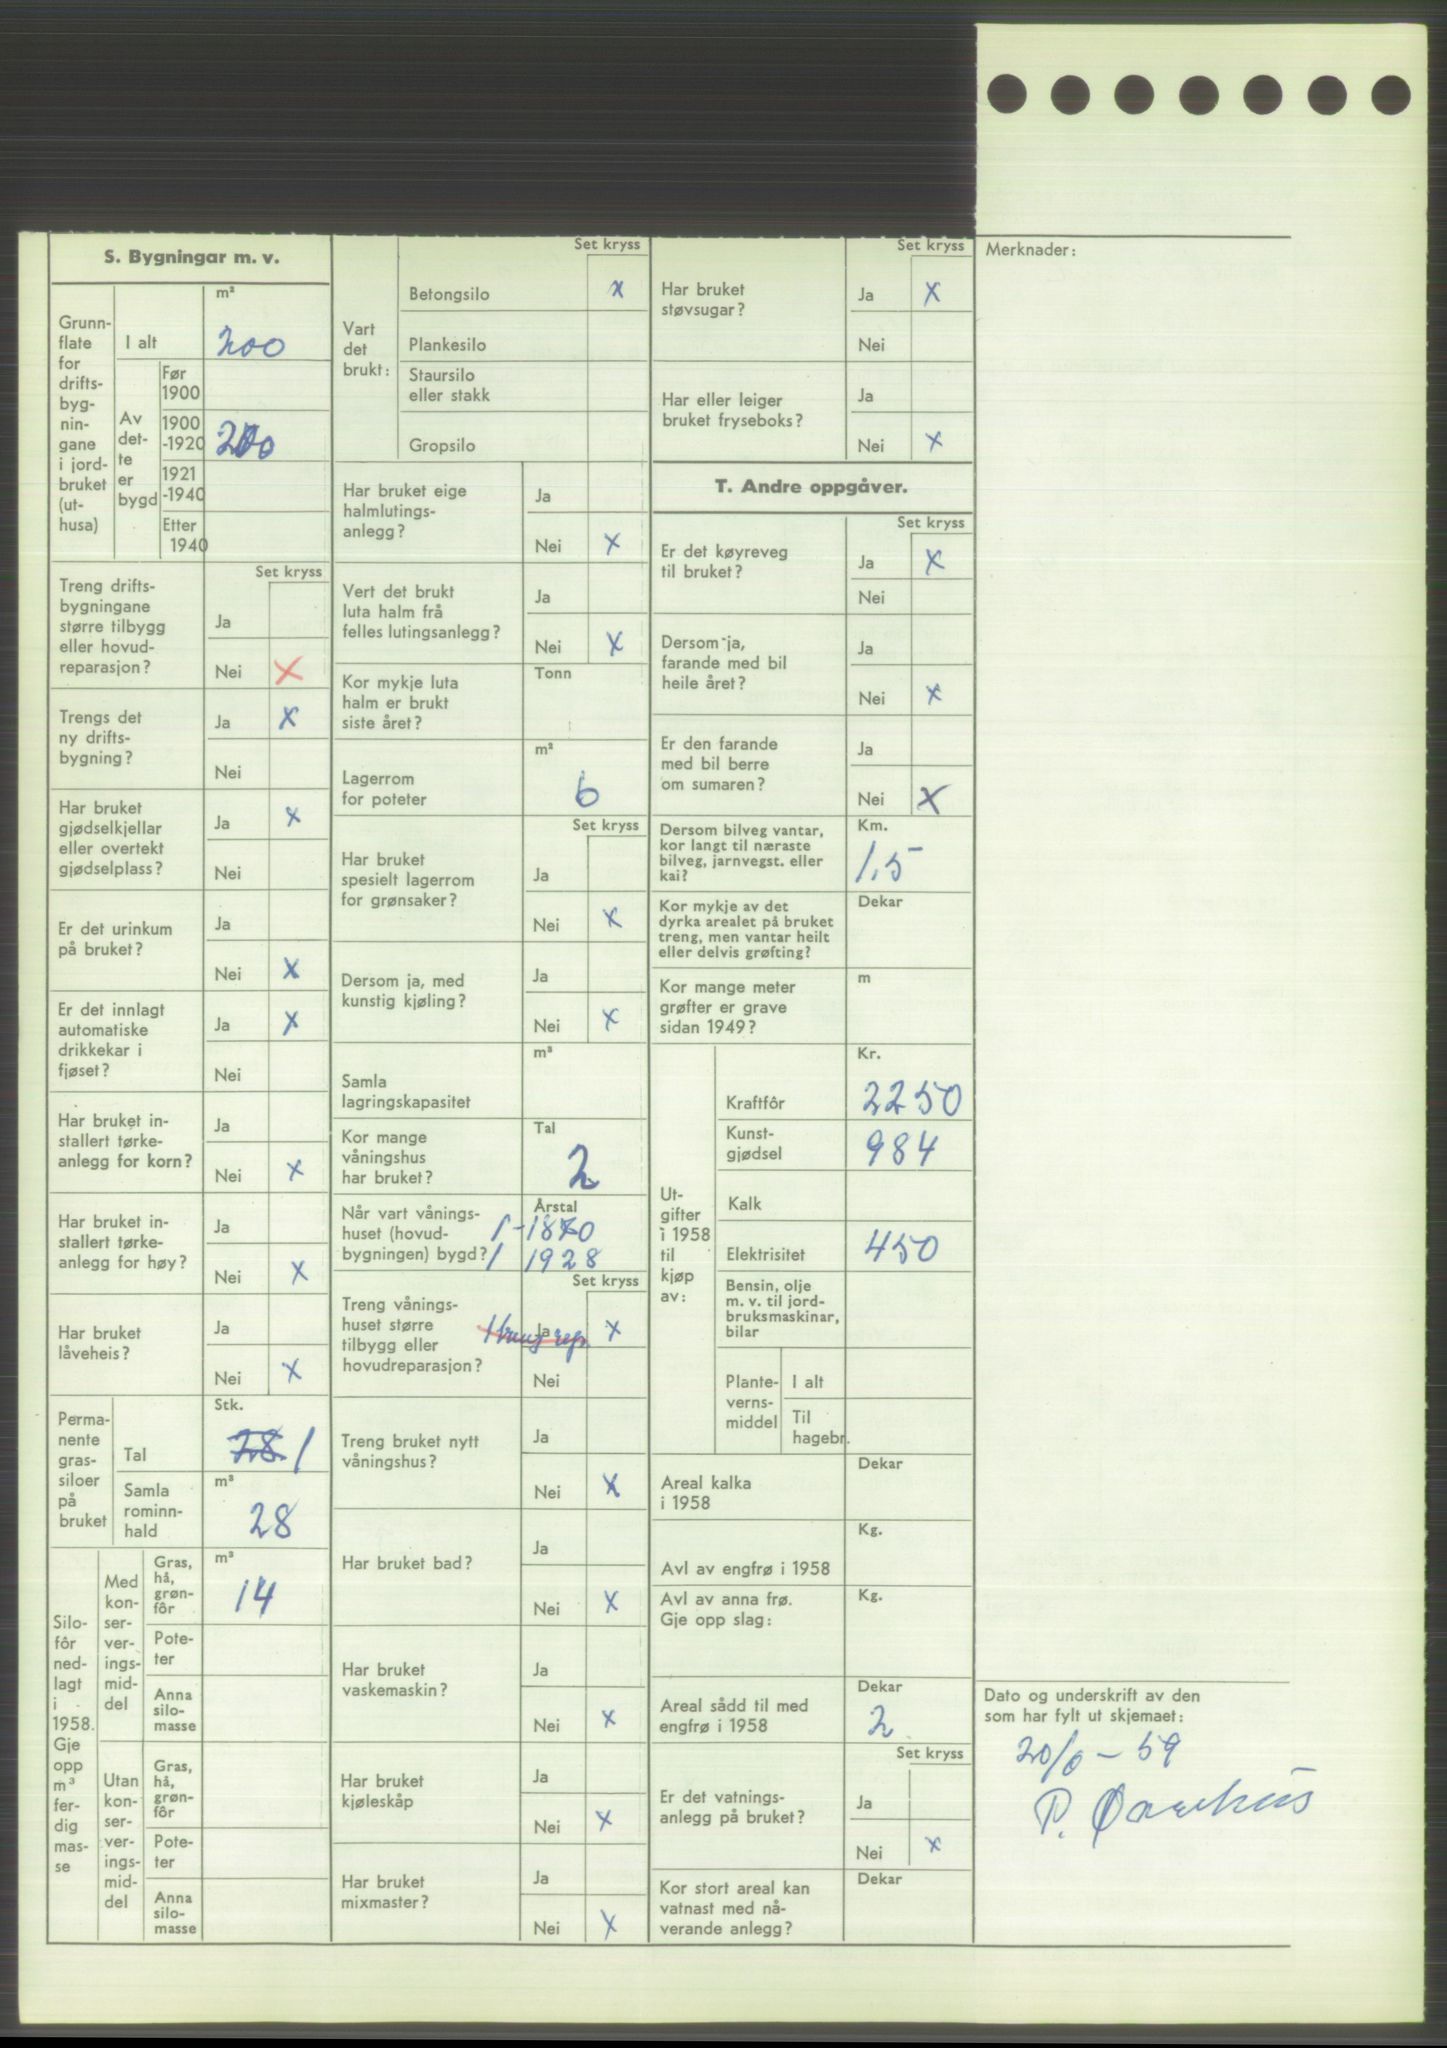 S. Bygningar m. v.
Grunn-
flate
for
drifts-
byg-
nin-
gane
i jord-
bruket
(ut-
husa)
m²
I alt
200
Av
det-
te
er
bygd
Før
1900
1900
-1920
200
1921
-1940
Etter
1940
Set kryss
Treng drifts-
bygningane
større tilbygg
eller hovud-
reparasjon?
Ja
Nei X
Trengs det
ny drifts-
bygning?
Ja X
Nei
Har bruket
gjødselkjellar
eller overtekt
gjødselplass?
Ja X
Nei
Er det urinkum
på bruket?
Ja
Nei X
Er det innlagt
automatiske
drikkekar i
fjøset?
Ja X
Nei
Har bruket in-
stallert tørke-
anlegg for korn?
Ja
Nei X
Har bruket in-
stallert tørke-
anlegg for høy?
Ja
Nei X
Har bruket
låveheis?
Ja
Nei X
Perma-
nente
gras-
siloer
på
bruket
Stk.
Tal
28 1
m³
Samla
rominn-
hald
28
Silo-
fôr
ned-
lagt
i
1958.
Gje
opp
m³
fer-
dig
mas-
se
Med
kon-
ser-
ver-
ings-
mid-
del
Gras,
hå,
grøn-
fôr
m³
14
Pote-
ter
Anna
silo-
masse
Utan
kon-
ser-
ver-
ings-
mid-
del
Gras,
hå,
grøn-
fôr
Pote-
ter
Anna
silo-
masse
Set kryss
Vart
det
brukt:
Betongsilo X
Plankesilo
Staursilo
eller stakk
Gropsilo
Har bruket eige
halmlutings-
anlegg?
Ja
Nei X
Vert det brukt
luta halm frå
felles lutingsanlegg?
Ja
Nei X
Kor mykje luta
halm er brukt
siste året?
Tonn
Lagerrom
for poteter
m²
6
Set kryss
Har bruket
spesielt lagerrom
for grønsaker?
Ja
Nei X
Dersom ja, med
kunstig kjøling?
Ja
Nei X
Samla
lagringskapasitet
m³
Kor mange
våningshus
har bruket?
Tal
2
Når vart vånings-
huset (hovud-
bygningen) bygd?
Årstal
1 - 1870
1 1928
Set kryss
Treng vånings-
huset større
tilbygg eller
hovudreparasjon?
Ja X
Nei
Treng bruket nytt
våningshus?
Ja
Nei X
Har bruket bad?
Ja
Nei X
Har bruket
vaskemaskin?
Ja
Nei X
Har bruket
kjøleskåp
Ja
Nei X
Har bruket
mixmaster?
Ja
Nei X
Set kryss
Har bruket
støvsugar?
Ja X
Nei
Har eller leiger
bruket fryseboks?
Ja
Nei X
T. Andre oppgåver.
Set kryss
Er det køyreveg
til bruket?
Ja X
Nei
Dersom ja,
farande med bil
heile året?
Ja
Nei X
Er den farande
med bil berre
om sumaren?
Ja
Nei X
Dersom bilveg vantar,
kor langt til næraste
bilveg, jarnvegst. eller
kai?
Km.
1,5
Kor mykje av det
dyrka arealet på bruket
treng, men vantar heilt
eller delvis grøfting?
Dekar
Kor mange meter
grøfter er grave
sidan 1949?
m
Ut-
gifter
i 1958
til
kjøp
av:
Kr.
Kraftfôr
2250
Kunst-
gjødsel
984
Kalk
Elektrisitet
450
Bensin, olje
m. v. til jord-
bruksmaskinar,
bilar
Plante-
verns-
middel
I alt
Til
hagebr.
Areal kalka
i 1958
Dekar
Avl av engfrø i 1958
Kg.
Avl av anna frø.
Gje opp slag:
Kg.
Areal sådd til med
engfrø i 1958
Dekar
2
Set kryss
Er det vatnings-
anlegg på bruket?
Ja
Nei X
Kor stort areal kan
vatnast med nå-
verande anlegg?
Dekar
Merknader:
Dato og underskrift av den
som har fylt ut skjemaet:
P.